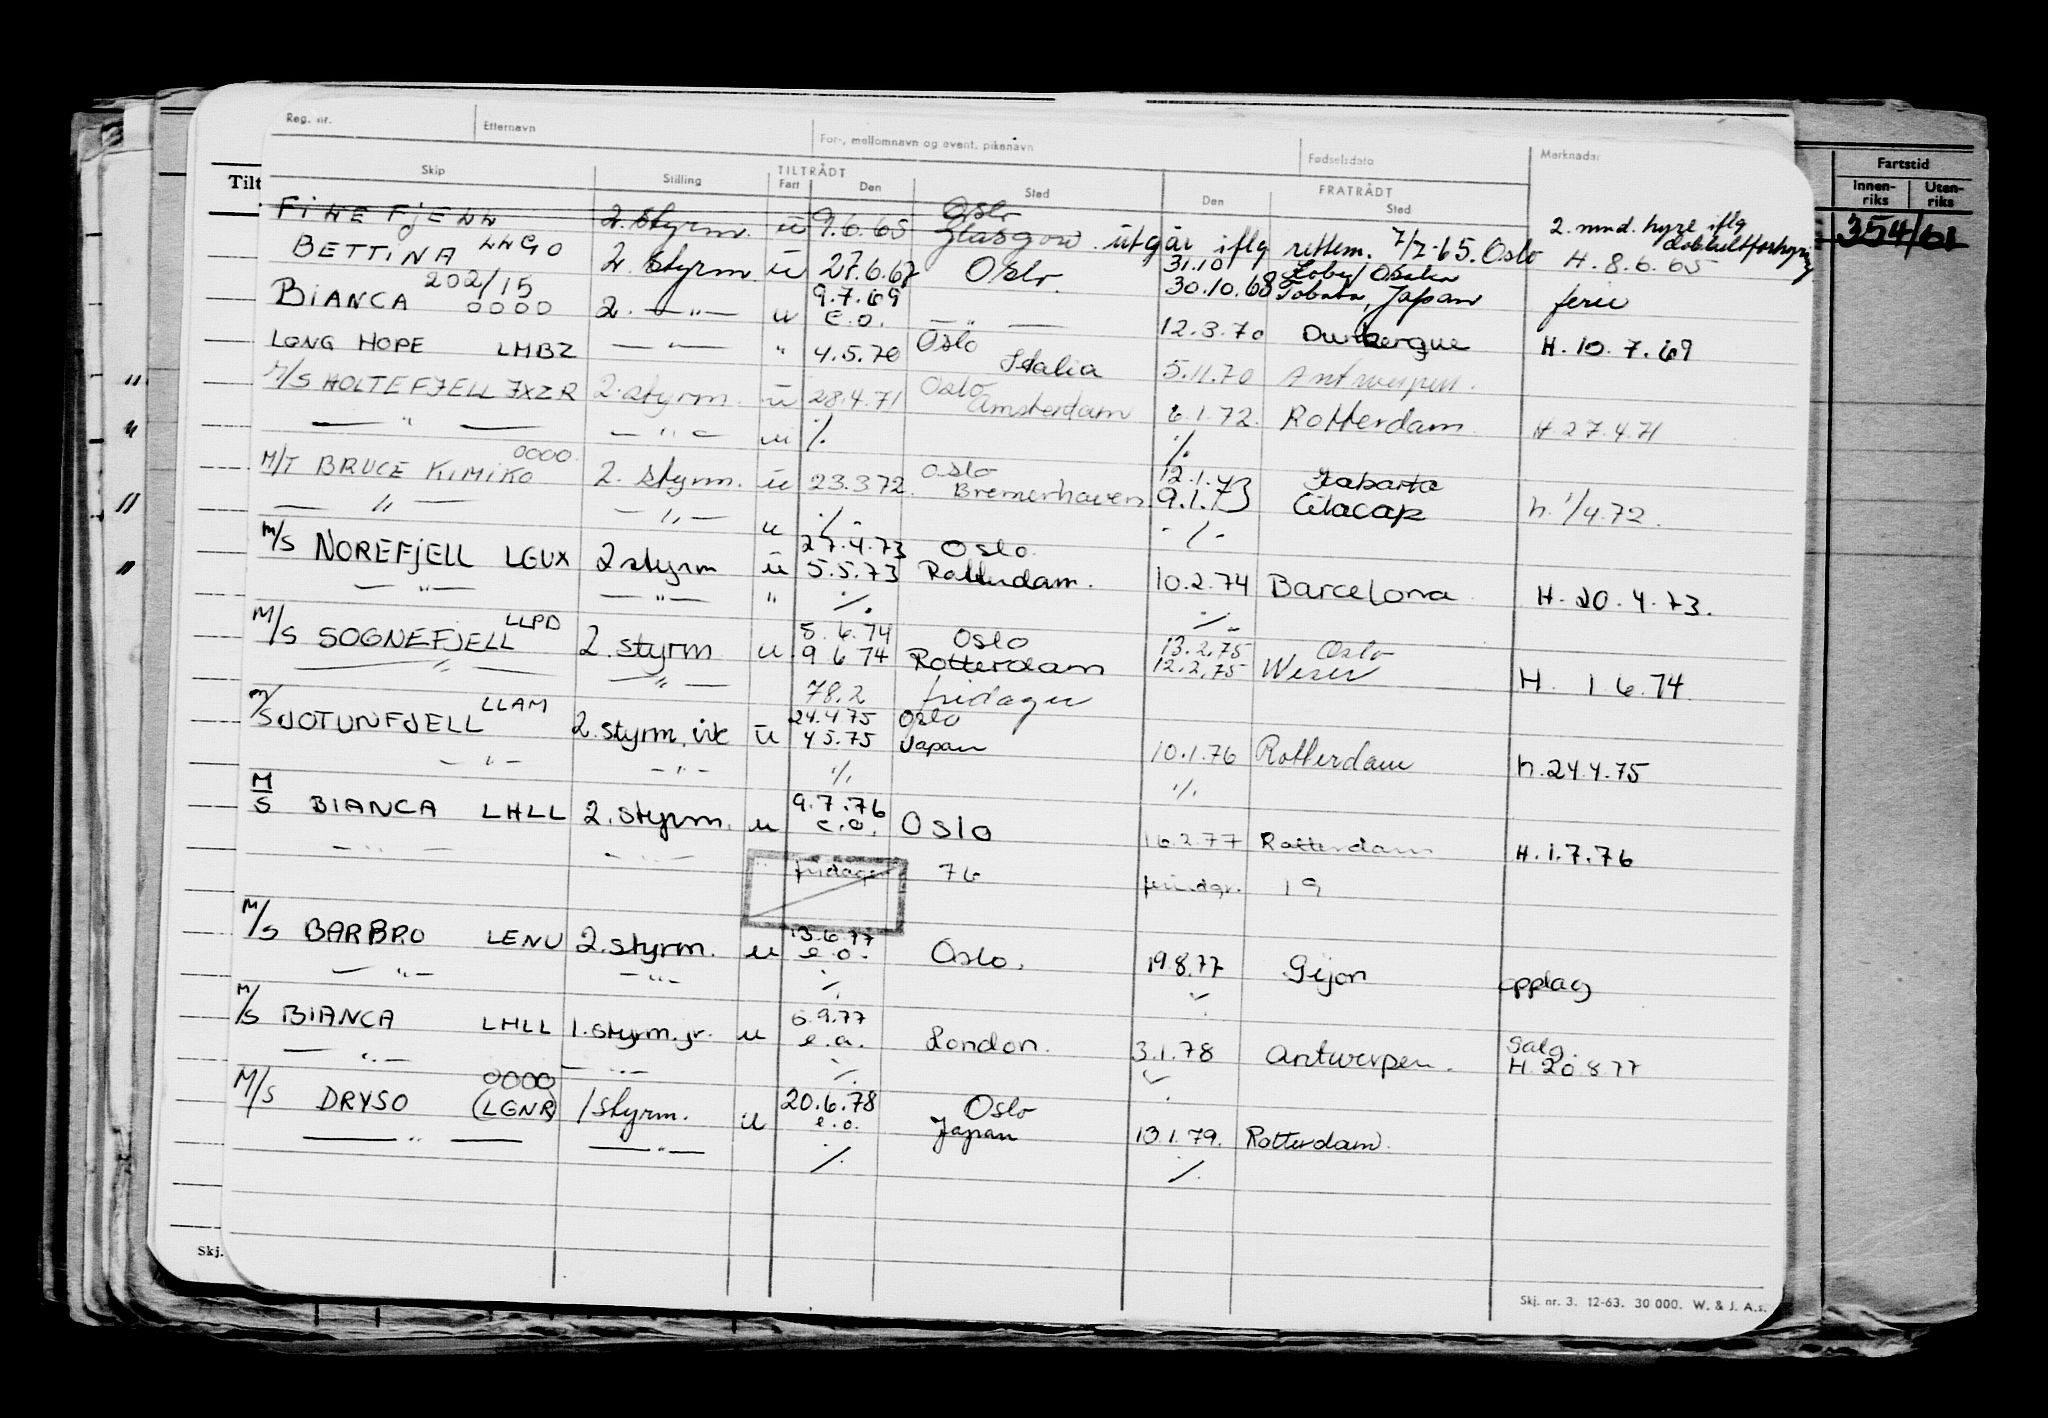 Reg. nr. Etternavn For-, mellomnavn og event. pikenavn Fødselsdato Merknader
Skip Stilling TILTRÅDT Fart Den Sted FRATRÅDT Den Sted
Tilt
Fartstid
Innen-riks Uten-riks
354/61
2. styrm. ū 9.6.65 Oslo Glasgow. utgår iflg rettem. 7/7-65. Oslo 2. mnd. hyre iflg
H. 8.6.65
BETTINA LLGO 2. styrm ū 27.6.67 Oslo. 31.10 Osaka
202/15 30.10.68 Tobata, Japan ferie
BIANCA 0000 2. —"— u 9.7.69 e.o. —"— 12.3.70 H. 10.7.69
LONG HOPE LMBZ —"— " 4.5.70 Oslo Italia 5.11.70 Antwerpen.
M/S HOLTEFJELL JXZR 2. styrm. ū 28.4.71 Oslo Amsterdam 6.1.72. Rotterdam H 27.4.71
—"— —"— u ./. ./.
M/T BRUCE KIMIKO 0000 2. styrm. ū 23.3.72. Oslo Bremerhaven 12.1.73
9.1.73 Cilacap h. 1/4.72.
—"— —"— u ./. ./.
M/S NOREFJELL LGUX 2 styrm ū 27.4.73 Oslo.
5.5.73 Rotterdam. 10.2.74 Barcelona H. 20.4.73.
—"— —"— " ./. ./.
M/S SOGNEFJELL LLPD 2. styrm u. 5.6.74 Oslo 13.2.75 Oslo
9 6 74 Rotterdam 12.2.75 Weser H. 1 6.74
—"— —"— 78,2 fridager
M/S JOTUNFJELL LLAM 2. styrm. vik ū 24.4.75 Oslo
4 5.75 Japan 10.1.76 Rotterdam h. 24.4.75
—"— —"— ./. ./.
M/S BIANCA LHLL 2. styrm. u 9.7.76 e.o. Oslo 16.2.77 Rotterdam H. 1.7.76
—"— —"— " fridager 76 19
M/S BARBRO LENU 2. styrm. u 13.6.77 e.o. Oslo. 19.8.77 Gijon opplag
—"— —"— ./. ./.
M/S BIANCA LHLL 1. styrm. jr. u 6.9.77 e.a. London. 3.1.78 Antwerpen. Salg.
H. 20 8 77
—"— —"— ./. ./.
M/S DRYSO 0000 (LGNR) 1 styrm. u 20.6.78 e.o. Oslo
Japan 13 1.79. Rotterdam.
—"— —"— ./. ./.
Skj.
Skj. nr. 3. 12-63. 30 000. W. & J. A.s.